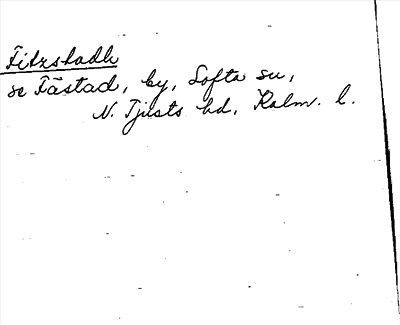 Fitzstadh
se Fästad, by, Lofta sn,
N. Tjusts hd, Kalm. l.